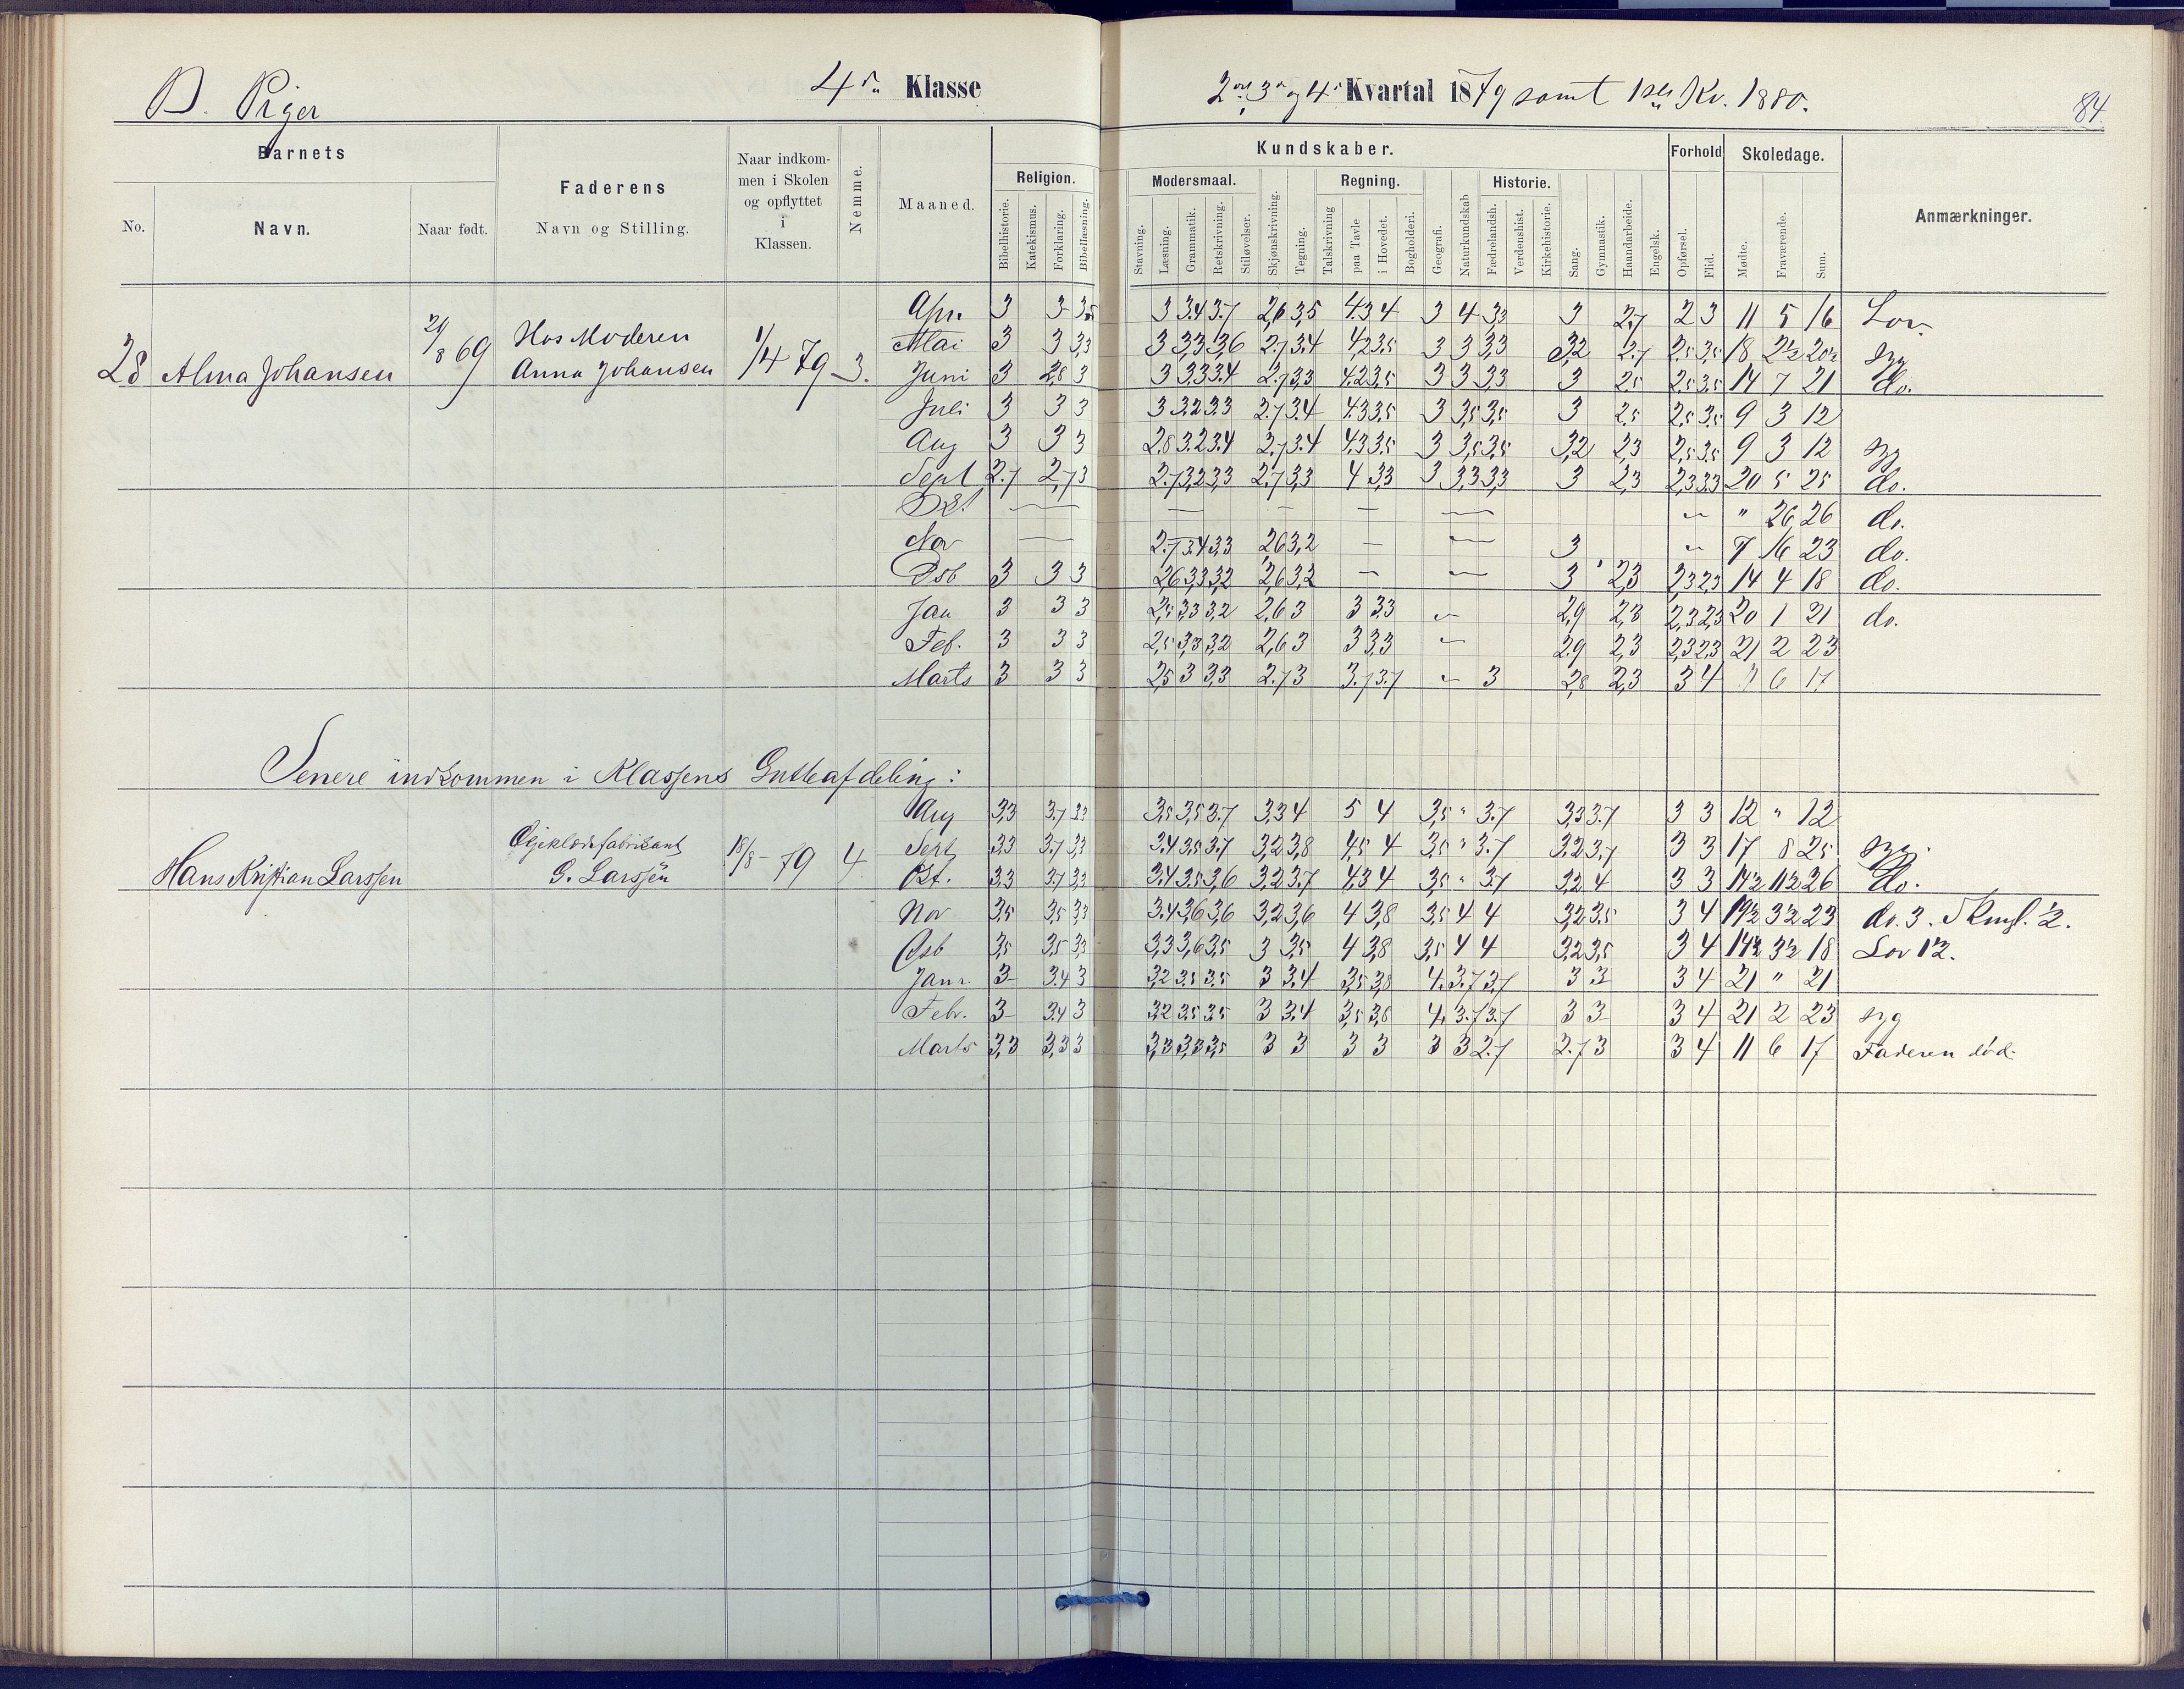 B. Piger
4de Klasse
2det, 3de og 4de Kvartal 1879 samt 1ste Kv. 1880.
84.
Barnets
No.
Navn.
Naar født.
Faderens
Navn og Stilling.
Naar indkom-
men i Skolen
og opflyttet
i
Klassen.
Nemme.
Maaned.
Kundskaber.
Religion.
Bibelhistorie.
Katekismus.
Forklaring.
Bibellæsning.
Modersmaal.
Stavning.
Læsning.
Grammatik.
Retskrivning.
Stiløvelser.
Skjønskrivning.
Tegning.
Regning.
Talskrivning
paa Tavle
i Hovedet.
Bogholderi.
Geografi.
Naturkundskab
Historie.
Fædrelandsh.
Verdenshist.
Kirkehistorie.
Sang.
Gymnastik.
Haandarbeide.
Engelsk.
Forhold
Opførsel.
Flid.
Skoledage.
Mødte.
Fraværende.
Sum.
Anmærkninger.
28 Alma Johansen
8 69
Hos Moderen
Anna Johansen
1/4 79 3.
Apr. 3 3 3,5 3 3.4 3.7 2,6 3,5 4.3 4 3 4 3,3 3 2.7 2 3 11 5 16 Lov.
Mai 3 3 3,3 3 3,3 3,6 2.7 3.4 4,2 3,5 3 3 3,3 3,2 2.7 2,5 3,5 18 2½ 20½ syg
Juni 3 2,8 3 3 3.3 3.4 2.7 3,3 4.2 3,5 3 3 3,3 3 2,5 2,5 3,5 14 7 21 do.
Juli 3 3 3 3 3.2 3.3 2.7 3.4 4.3 3,5 3 3,5 3,5 3 2,5 2,5 3,5 9 3 12
Aug 3 3 3 2.8 3.2 3.4 2.7 3.4 4.3 3,5 3 3,5 3,5 3,2 2,3 2,5 3,5 9 3 12 syg
Sept 2.7 2,7 3 2.7 3,2 3,3 2.7 3,3 4 3,3 3 3,3 3,3 3 2,3 2,3 3,3 20 5 25 do.
Okt. — — — — — — " 26 26 do.
Nov — 2.7 3.4 3,3 2,6 3,2 — — 3 — 7 16 23 do.
Dsb 3 3 3 2,6 3,3 3,2 2,6 3,2 — — 3 2,3 2,3 2,3 14 4 18 do.
Jan 3 3 3 2,5 3,3 3,2 2,6 3 3 3,3 — 2,9 2,3 2,3 2,3 20 1 21 do.
Feb. 3 3 3 2,5 3,3 3,2 2,6 3 3 3,3 — 2,9 2,3 2,3 2,3 21 2 23
Marts 3 3 3 2,5 3 3,3 2.7 3 3.7 3.7 — 3 2,8 2,3 3 4 11 6 17
Senere indkommen i Klassens Gutteafdeling:
Aug 3,3 3.7 3,3 3,5 3,5 3.7 3,3 4 5 4 3,5 " 3.7 3,3 3.7 3 3 12 " 12
Hans Kristian Larssen
Oljeklædefabrikant
G. Larssen
18/8 79 4
Sept 3,3 3.7 3,3 3.4 3,5 3.7 3,2 3,8 4,5 4 3,5 " 3.7 3,2 3,7 3 3 17 8 25 syg.
Okt. 3,3 3.7 3,3 3.4 3.5 3,6 3,2 3.7 4.3 4 3,5 " 3.7 3,2 4 3 3 14½ 11½ 26 do.
Nov 3,5 3,5 3,3 3.4 3,6 3,6 3,2 3,6 4 3,8 3,5 4 4 3,2 3,5 3 4 19½ 3½ 23 do. 3.
Dsb 3,5 3,5 3,3 3,3 3,6 3,5 3 3,5 4 3,8 3,5 4 4 3,2 3,5 3 4 14½ 3½ 18 Lov 1½.
Janr. 3 3.4 3 3,2 3.5 3.5 3 3.4 3,5 3,8 4. 3.7 3.7 3 3 3 4 21 " 21
Febr. 3 3.4 3 3,2 3.5 3.5 3 3.4 3,5 3,8 4. 3.7 3.7 3 3 3 4 21 2 23 syg
Marts 3,3 3,3 3 3,3 3,3 3,5 3 3 3 3 3 3 2.7 2.7 3 3 4 11 6 17 Faderen død.